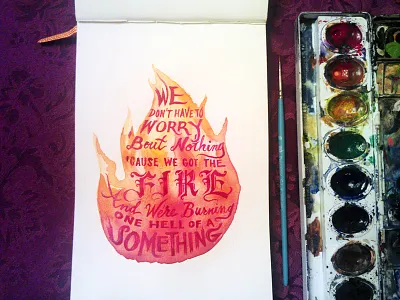 WE
DON'T HAVE TO
WORRY
'Bout Nothing
'CAUSE WE GOT THE
FIRE
And We're Burning
ONE HELL OF A
SOMETHING